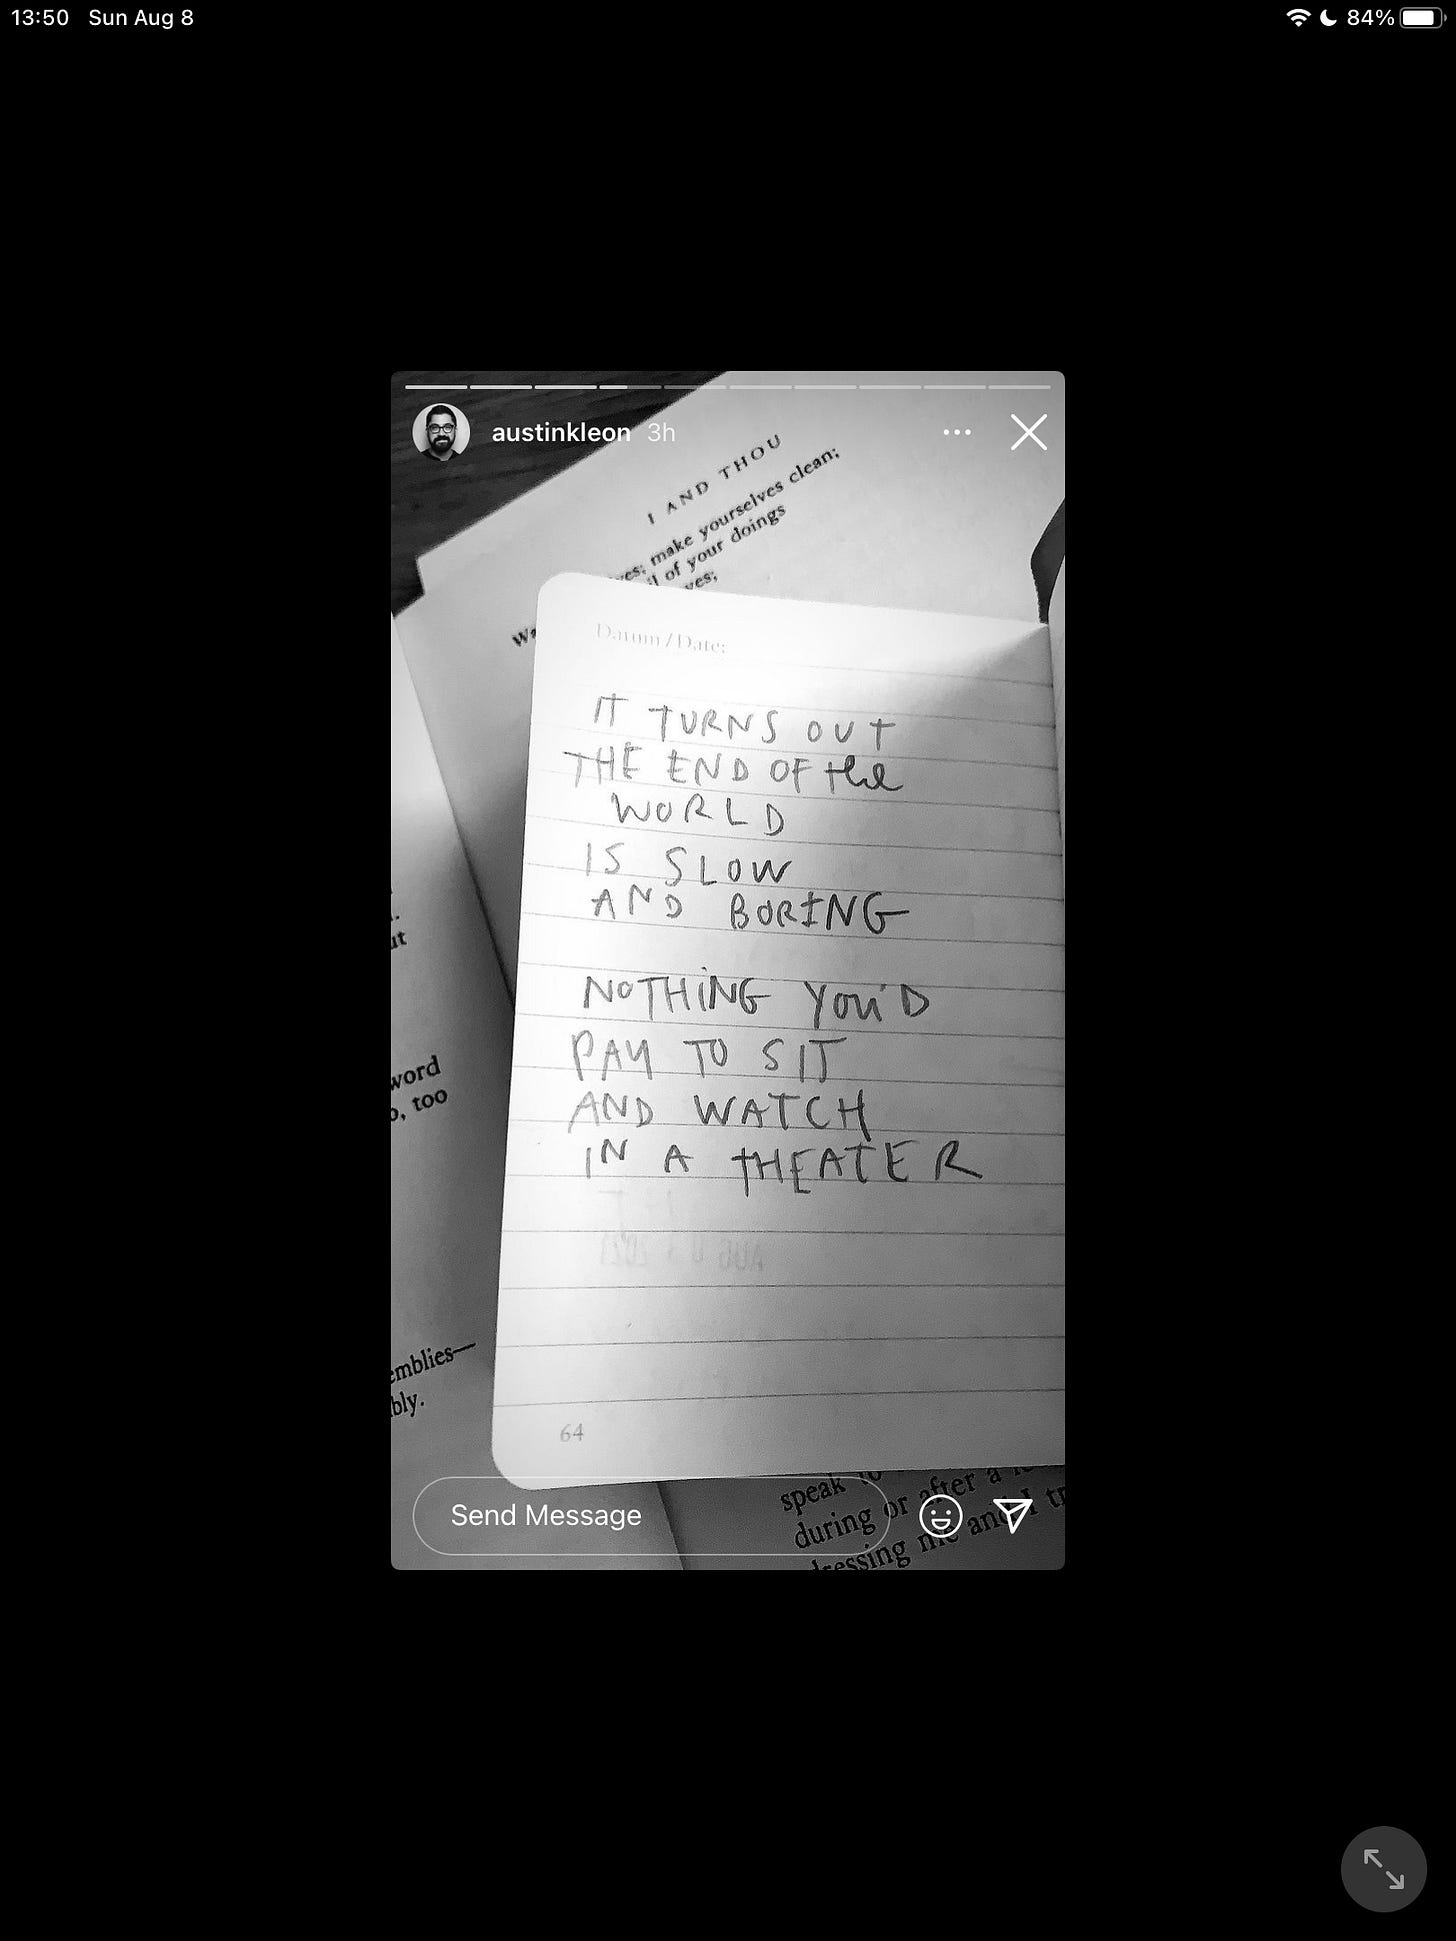 13:50 Sun Aug 8 84%
austinkleon 3h
I AND THOU
make yourselves clean;
of your doings
Datum/Date:
IT TURNS OUT
THE END OF the
WORLD
IS SLOW
AND BORING
NOTHING YOU'D
PAY TO SIT
AND WATCH
IN A THEATER
AUG 2021
too
64
speak to
during or after a
and I
Send Message